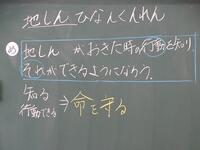 地しん ひなんくんれん
め 地しん がおきた時の行動を知り
それができるようになろう。
知る
行動できる ⇒ 命を守る